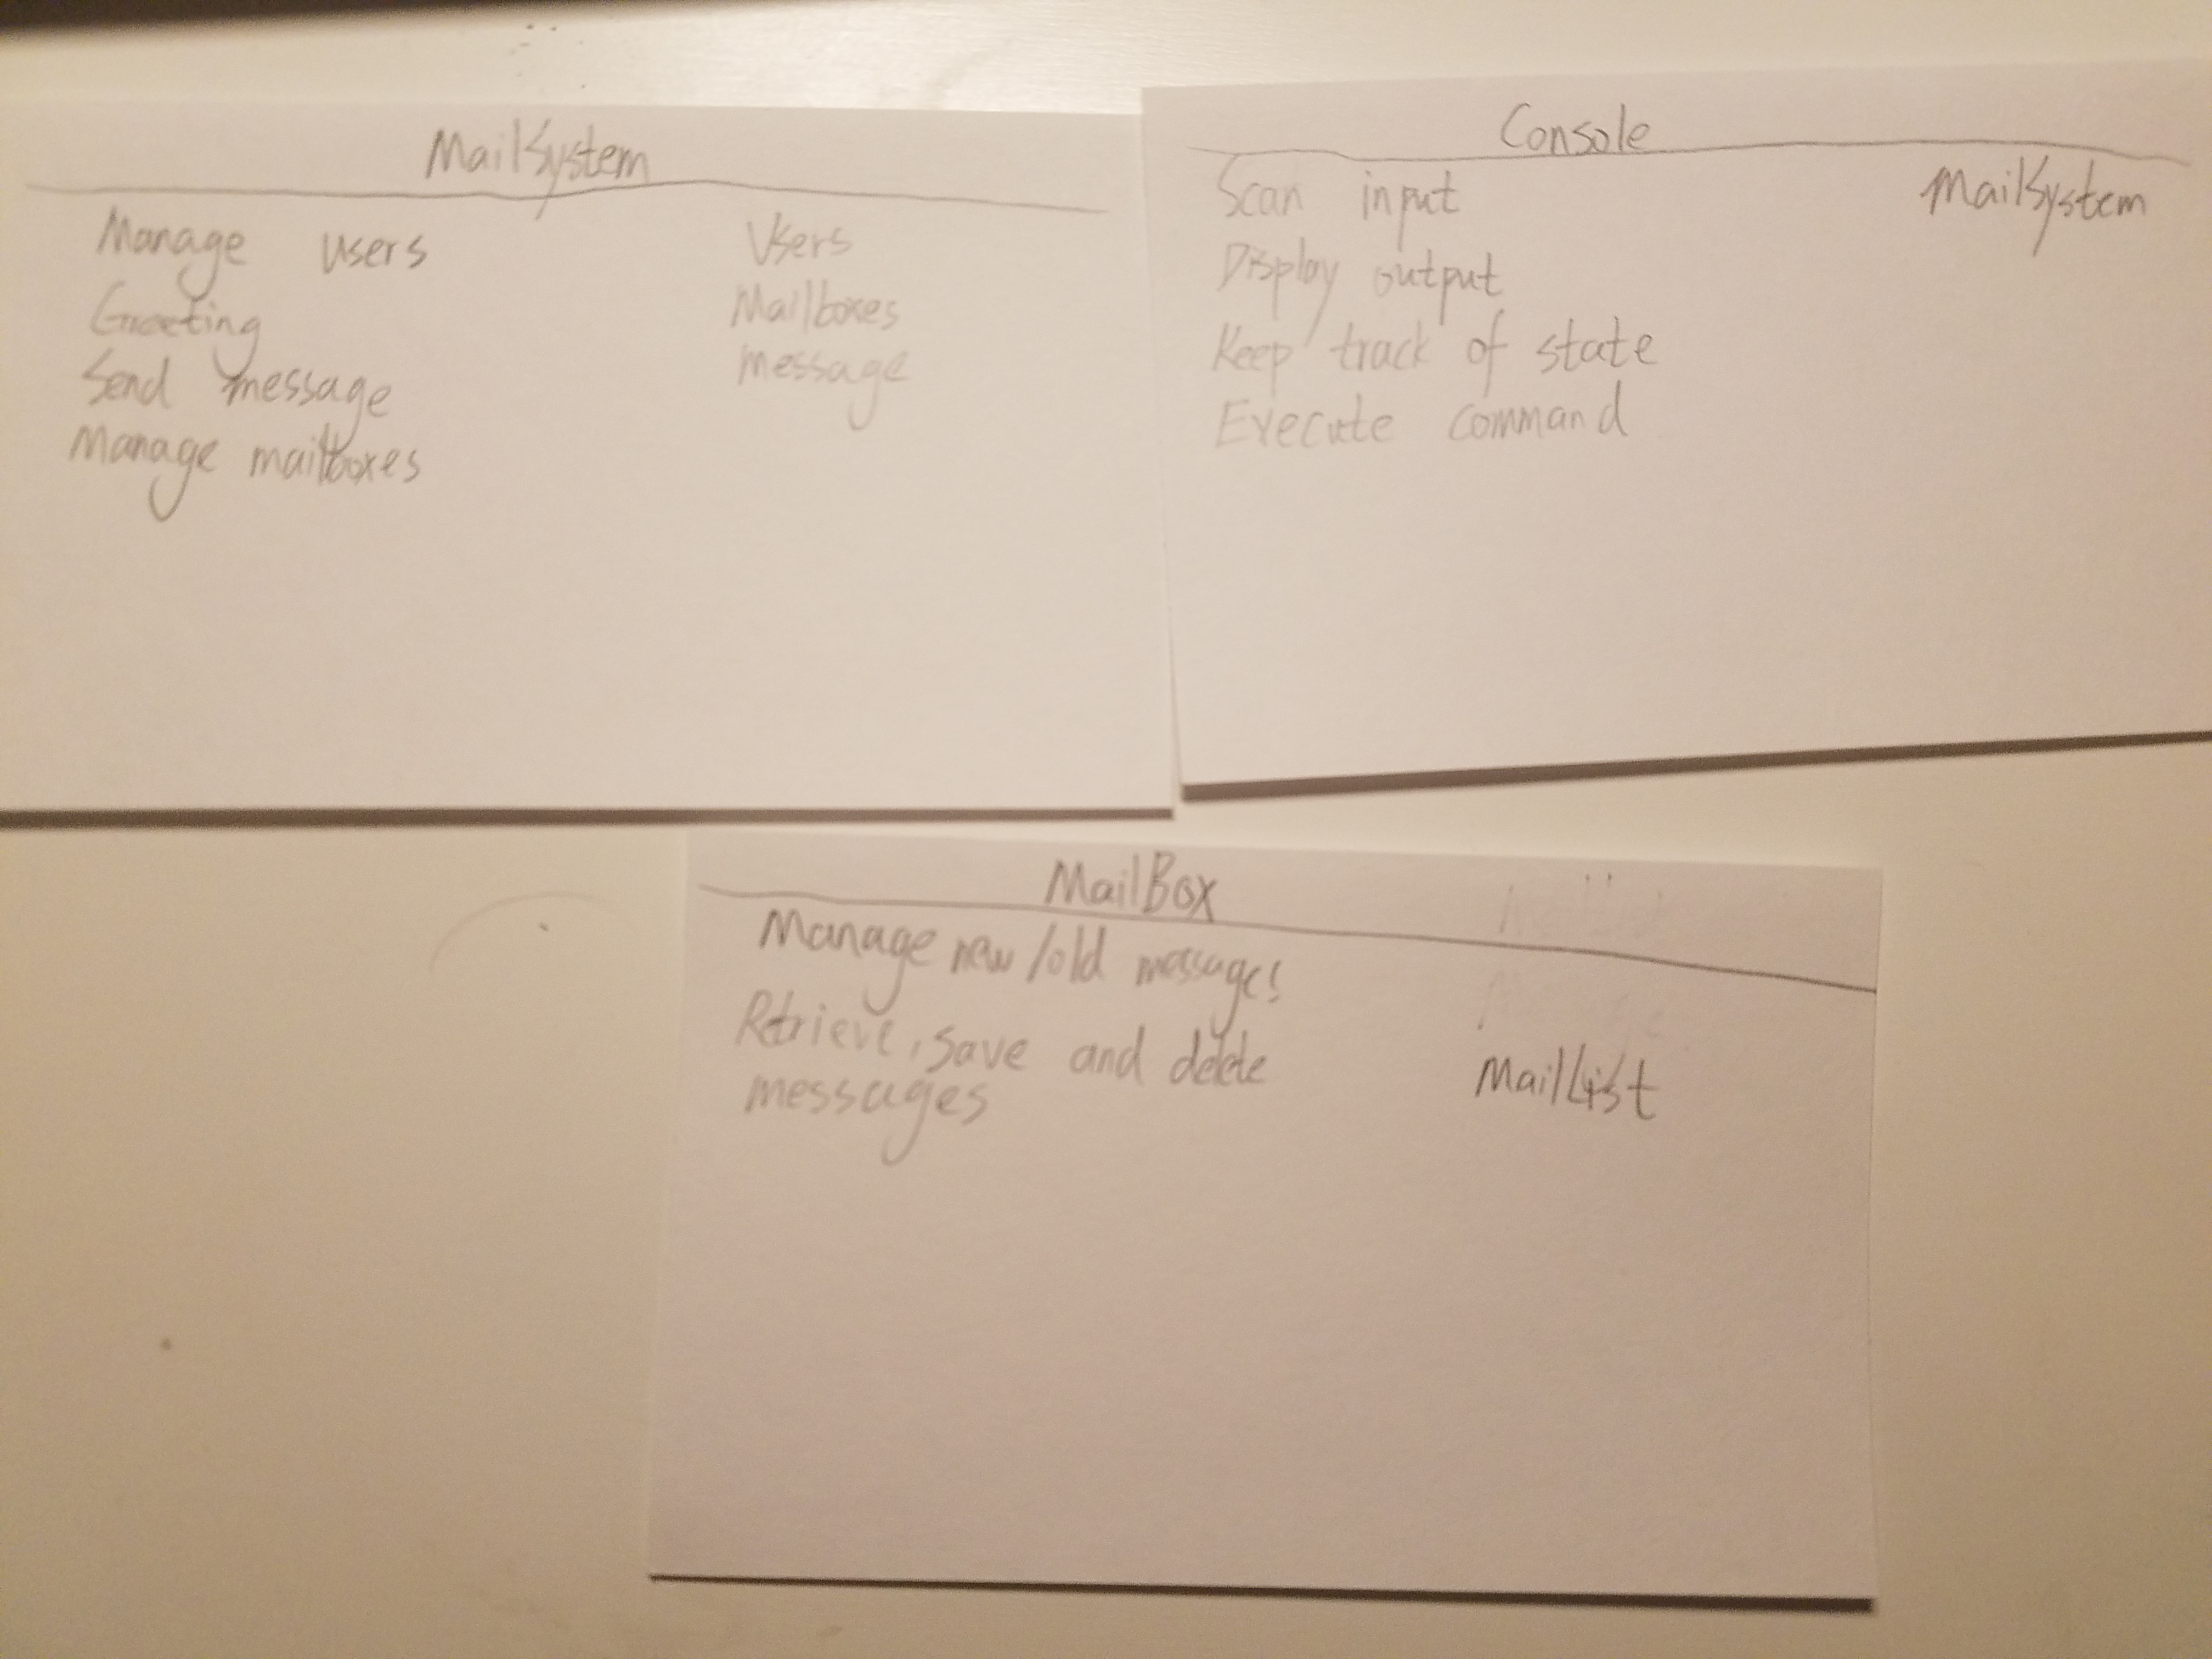 MailSystem
Manage users
Greeting
Send message
Manage mailboxes
Users
Mailboxes
message
Console
Scan input
Display output
Keep track of state
Execute command
MailSystem
MailBox
Manage new/old messages
Retrieve, save and delete
messages
MailList